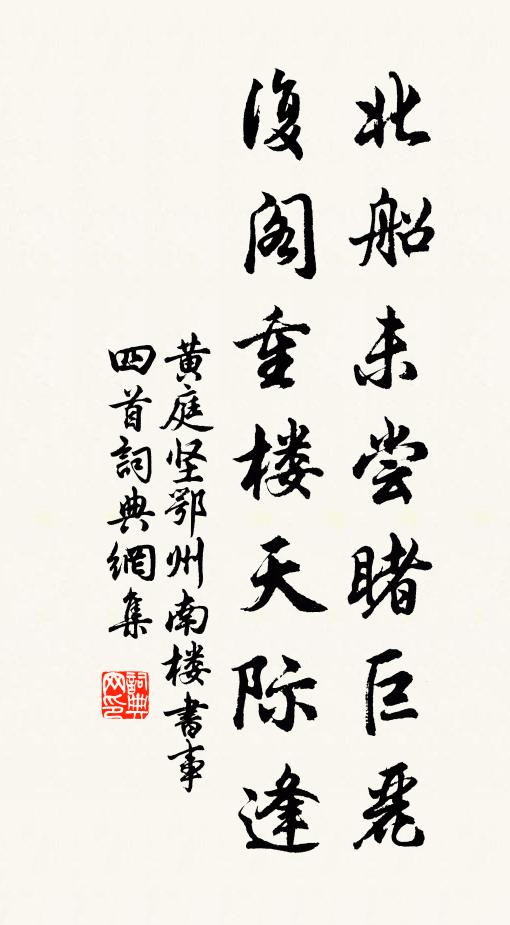 北船未尝睹巨丽
复阁重楼天际逢
黄庭坚鄂州南楼书事
四首詞典網集
詞典网印